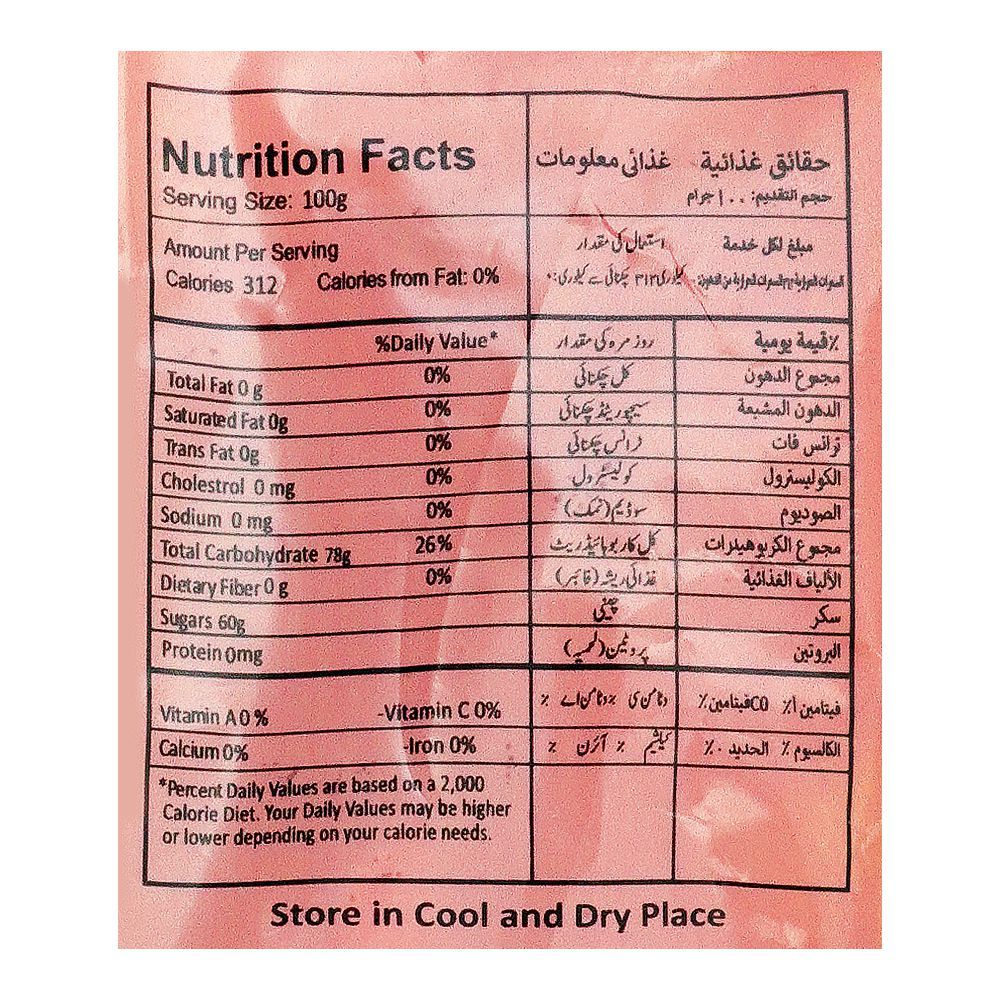 Nutrition Facts
غذائی معلومات
حقائق غذائية
Serving Size: 100g
حجم التقديم: ١٠٠ جرام
Amount Per Serving
استعمال کی مقدار
مبلغ لكل خدمة
Calories 312
Calories from Fat: 0%
کیلوری ۳۱۲ چکنائی سے کیلوری:۰
%Daily Value*
روزمرہ کی مقدار
٪قيمة يومية
Total Fat 0 g
0%
کل چکنائی
مجموع الدهون
Saturated Fat 0g
0%
سیچوریٹڈ چکنائی
الدهون المشبعة
Trans Fat 0g
0%
ٹرانس چکنائی
ترانس فات
Cholestrol 0 mg
0%
کولیسٹرول
الكوليسترول
Sodium 0 mg
0%
سوڈیم (نمک)
الصوديوم
Total Carbohydrate 78g
26%
کل کاربوہائیڈریٹ
مجموع الكربوهيدرات
Dietary Fiber 0 g
0%
غذائی ریشہ (فائبر)
الألياف الغذائية
Sugars 60g
چینی
سكر
Protein 0mg
پروٹین (لحمیہ)
البروتين
Vitamin A 0 %
-Vitamin C 0%
وٹامن سی ٪ وٹامن اے ٪
فيتامين أ٪ C0فيتامين٪
Calcium 0%
-Iron 0%
کیلشیم ٪ آئرن ٪
الكالسيوم ٪ الحديد ٠٪
*Percent Daily Values are based on a 2,000
Calorie Diet. Your Daily Values may be higher
or lower depending on your calorie needs.
Store in Cool and Dry Place